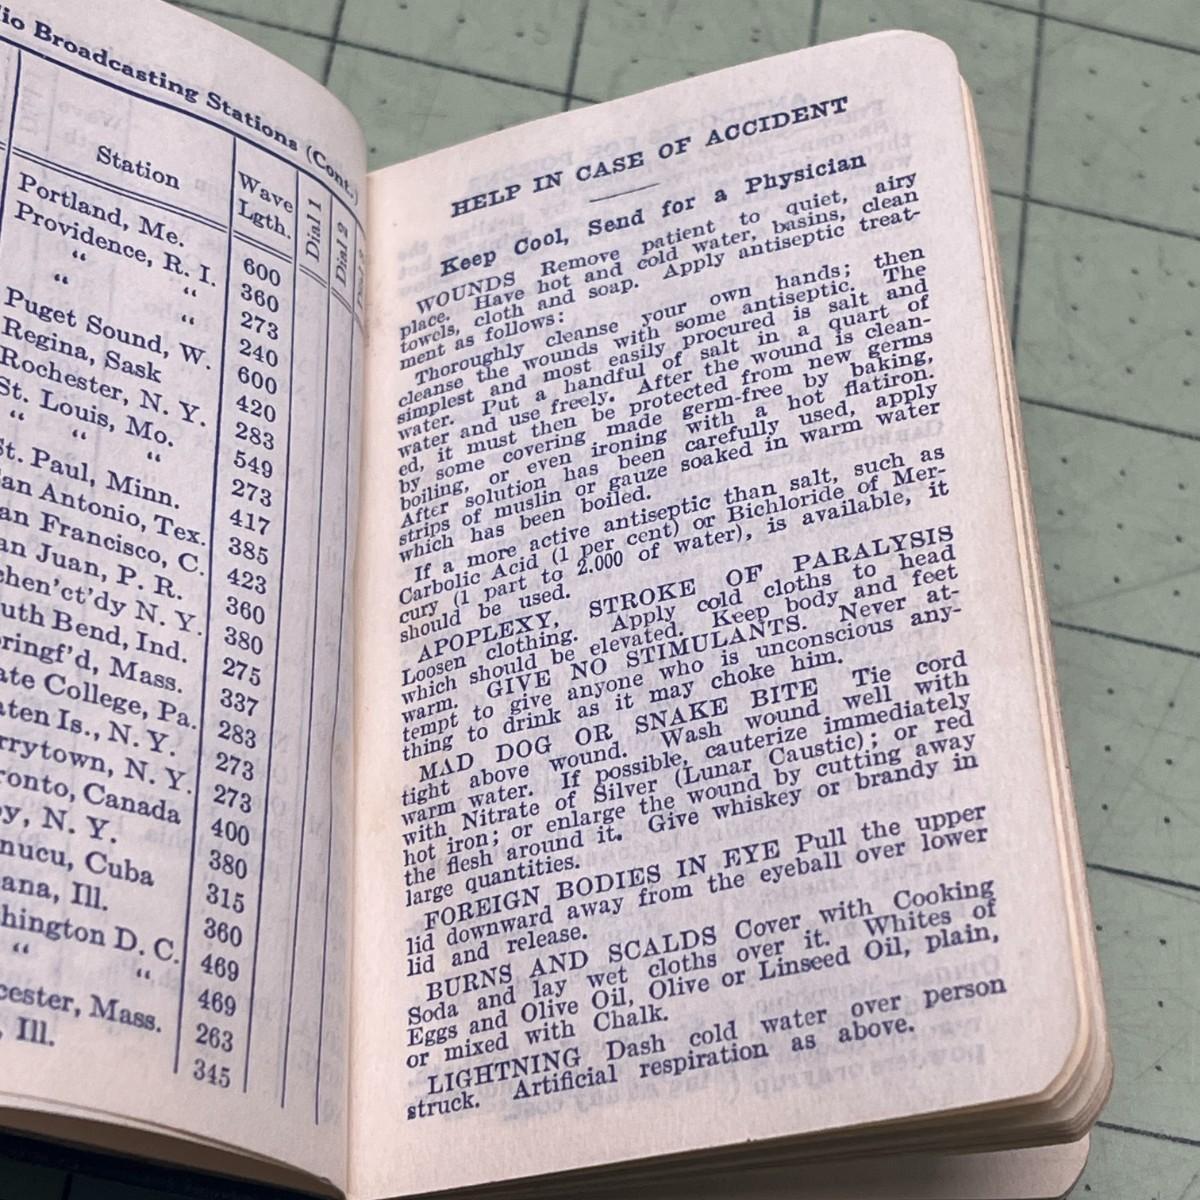 io Broadcasting Stations (Cont.)
Station
Wave
Lgth.
Dial 1
Dial 2
Portland, Me. 600
Providence, R. I. 360
“ “ 273
“ “ 240
Puget Sound, W. 600
Regina, Sask 420
Rochester, N. Y. 283
St. Louis, Mo. 549
“ “ 273
“ “ 417
St. Paul, Minn. 385
an Antonio, Tex. 423
an Francisco, C. 360
an Juan, P. R. 380
chen'ct'dy N. Y. 275
uth Bend, Ind. 337
pringf'd, Mass. 283
ate College, Pa. 273
aten Is., N. Y. 273
rrytown, N. Y. 400
ronto, Canada 380
y, N. Y. 315
nucu, Cuba 360
ana, Ill. 469
hington D. C. 469
“ “ 263
cester, Mass. 345
, Ill.
HELP IN CASE OF ACCIDENT
Keep Cool, Send for a Physician
WOUNDS Remove patient to quiet, airy
place. Have hot and cold water, basins, clean
towels, cloth and soap. Apply antiseptic treat-
ment as follows:
Thoroughly cleanse your own hands; then
cleanse the wounds with some antiseptic. The
simplest and most easily procured is salt and
water. Put a handful of salt in a quart of
water and use freely. After the wound is clean-
ed, it must then be protected from new germs
by some covering made germ-free by baking,
boiling, or even ironing with a hot flatiron.
After solution has been carefully used, apply
strips of muslin or gauze soaked in warm water
which has been boiled.
If a more active antiseptic than salt, such as
Carbolic Acid (1 per cent) or Bichloride of Mer-
cury (1 part to 2.000 of water), is available, it
should be used.
APOPLEXY, STROKE OF PARALYSIS
Loosen clothing. Apply cold cloths to head
which should be elevated. Keep body and feet
warm. GIVE NO STIMULANTS. Never at-
tempt to give anyone who is unconscious any-
thing to drink as it may choke him.
MAD DOG OR SNAKE BITE Tie cord
tight above wound. Wash wound well with
warm water. If possible, cauterize immediately
with Nitrate of Silver (Lunar Caustic); or red
hot iron; or enlarge the wound by cutting away
the flesh around it. Give whiskey or brandy in
large quantities.
FOREIGN BODIES IN EYE Pull the upper
lid downward away from the eyeball over lower
lid and release.
BURNS AND SCALDS Cover with Cooking
Soda and lay wet cloths over it. Whites of
Eggs and Olive Oil, Olive or Linseed Oil, plain,
or mixed with Chalk.
LIGHTNING Dash cold water over person
struck. Artificial respiration as above.